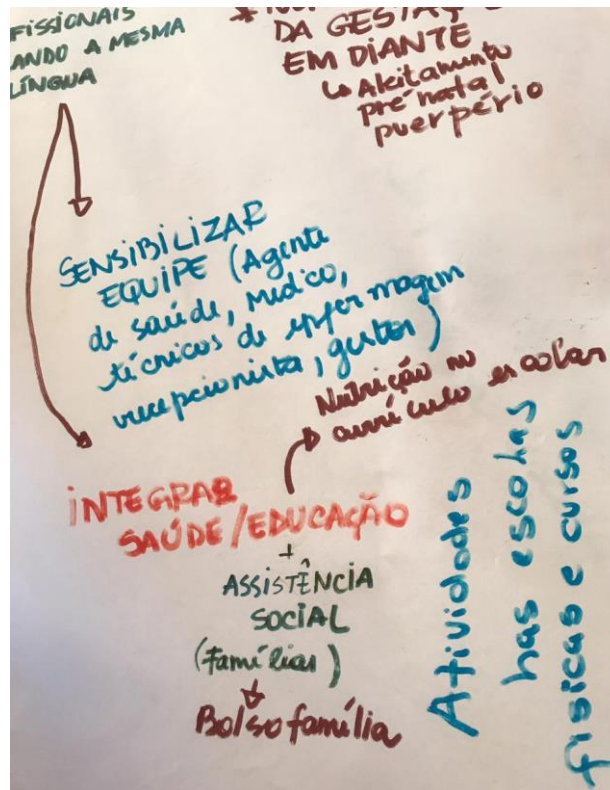 FISSIONAIS
ANDO A MESMA
LÍNGUA
DA GESTAÇ
EM DIANTE
↳ Aleitamento
pré natal
puerpério
SENSIBILIZAR
EQUIPE (Agente
de saúde, médico,
técnicos de enfermagem
recepcionista, gestor)
Nutrição no
currículo escolar
INTEGRAR
SAÚDE/EDUCAÇÃO
+
ASSISTÊNCIA
SOCIAL
(Famílias)
Bolsa família
Atividades
nas escolas
físicas e cursos